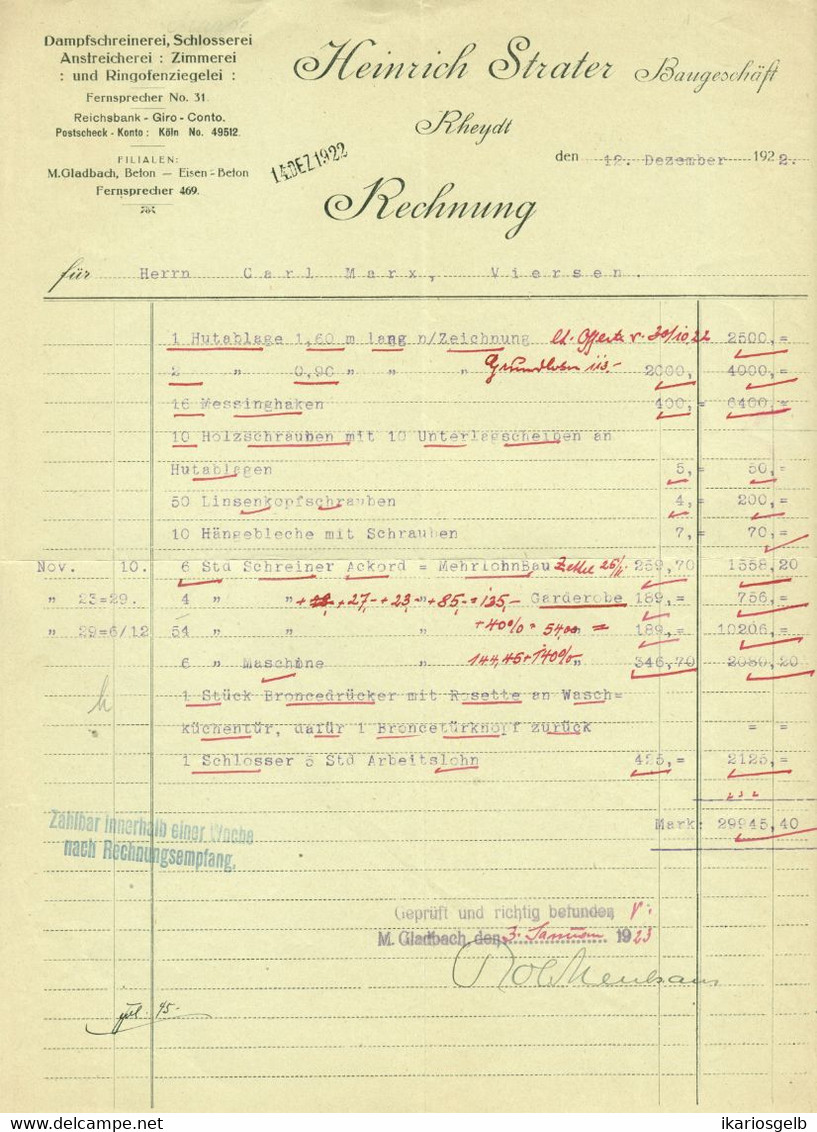 Dampfschreinerei, Schlosserei
Anstreicherei : Zimmerei
: und Ringofenziegelei :
Fernsprecher No. 31
Reichsbank - Giro - Conto.
Postscheck - Konto: Köln No. 49512.
FILIALEN:
M.Gladbach, Beton — Eisen - Beton
Fernsprecher 469.
Heinrich Strater Baugeschäft
Rheydt
14.DEZ.1922
den 12. Dezember 1922.
Rechnung
für Herrn Carl Marx, Viersen.
1 Hutablage 1,60 m lang n/Zeichnung lt. Offerte v. 30/10.22 2500,=
2 " 0,90 " " " 2000, 4000,=
16 Messinghaken 400,= 6400,=
10 Holzschrauben mit 10 Unterlagscheiben an
Hutablagen 5,= 50,=
50 Linsenkopfschrauben 4,= 200,=
10 Hängebleche mit Schrauben 7,= 70,=
Nov. 10. 6 Std Schreiner Ackord = MehrlohnBau Zettel 25/11. 259,70 1558,20
" 23=29. 4 " " +27,- +23,- +85,- =135,- " Garderobe 189,= 756,=
" 29=6/12 54 " " " +40% = 54,00 = 189,= 10206,=
6 " Maschine " 144,45+140% " 346,70 2080,20
1 Stück Broncedrücker mit Rosette an Wasch=
küchentür, dafür 1 Broncetürknopf zurück = =
1 Schlosser 5 Std Arbeitslohn 425,= 2125,=
232
Mark: 29945,40
Zahlbar innerhalb einer Woche
nach Rechnungsempfang.
Geprüft und richtig befunden
M. Gladbach den 3. Januar 1923
45.-
ikariosgelb